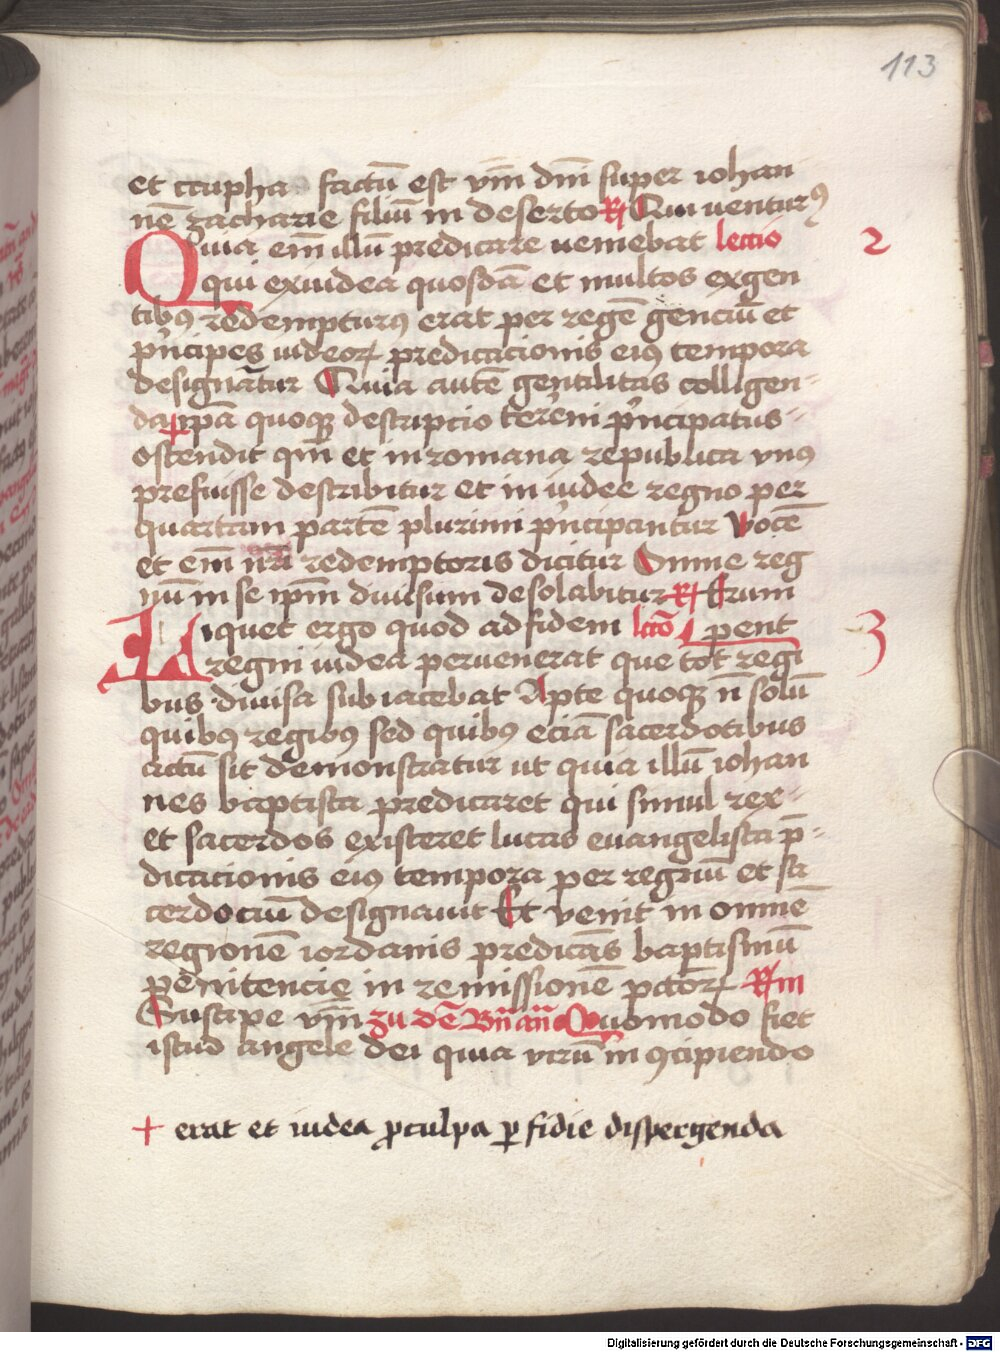 113
et caypha factū est vm̄ dm̄ super iohan
nē zacharie filiū in deserto R Qui ventur9
Quia em̄ illū predicare veniebat lectio 2
qui ex iudea quosdā et multos ex gen
tib9 redemptur9 erat per regē genciū et
p'ncipes iudeoꝝ predicacionis ei9 tempora
designātur Quia autē gentilitas colligen-
da + ip̄a quoqꝫ descriptio terreni p'ncipatus-
ostendit qm̄ et in romana republica vn9
prefuisse describitur et in iudee regno per
quartam partē plurimi p'ncipantur Vocē
et em̄ nr̄i redemptoris dicitur Omne reg
nū in se ip̄m diuisum desolabitur R Erum
Liquet ergo quod ad fidem lcō pent 3
regni iudea peruenerat que tot regi
bus diuisa subiacebat Apte quoqꝫ n̄ solū
quib9 regib9 sed quib9 eciā sacerdotibus
actū sit demonstratur ut quia illū iohan
nes baptista predicaret qui simul rex-
et sacerdos existeret lucas euangelista p̄-
dicacionis ei9 tempora per regnū et sa
cerdociū designauit Et venit in omnē
regionē iordanis predicās baptismū
penitencie in remissionē pctōꝝ Rm
Suscipe vm̄ zu dē Bn̄ an̄ Quomodo fiet
istud angele dei quia virū in 9cipiendo
+ erat et iudea ꝓ culpa ꝑfidie dispergenda
Digitalisierung gefördert durch die Deutsche Forschungsgemeinschaft - DFG